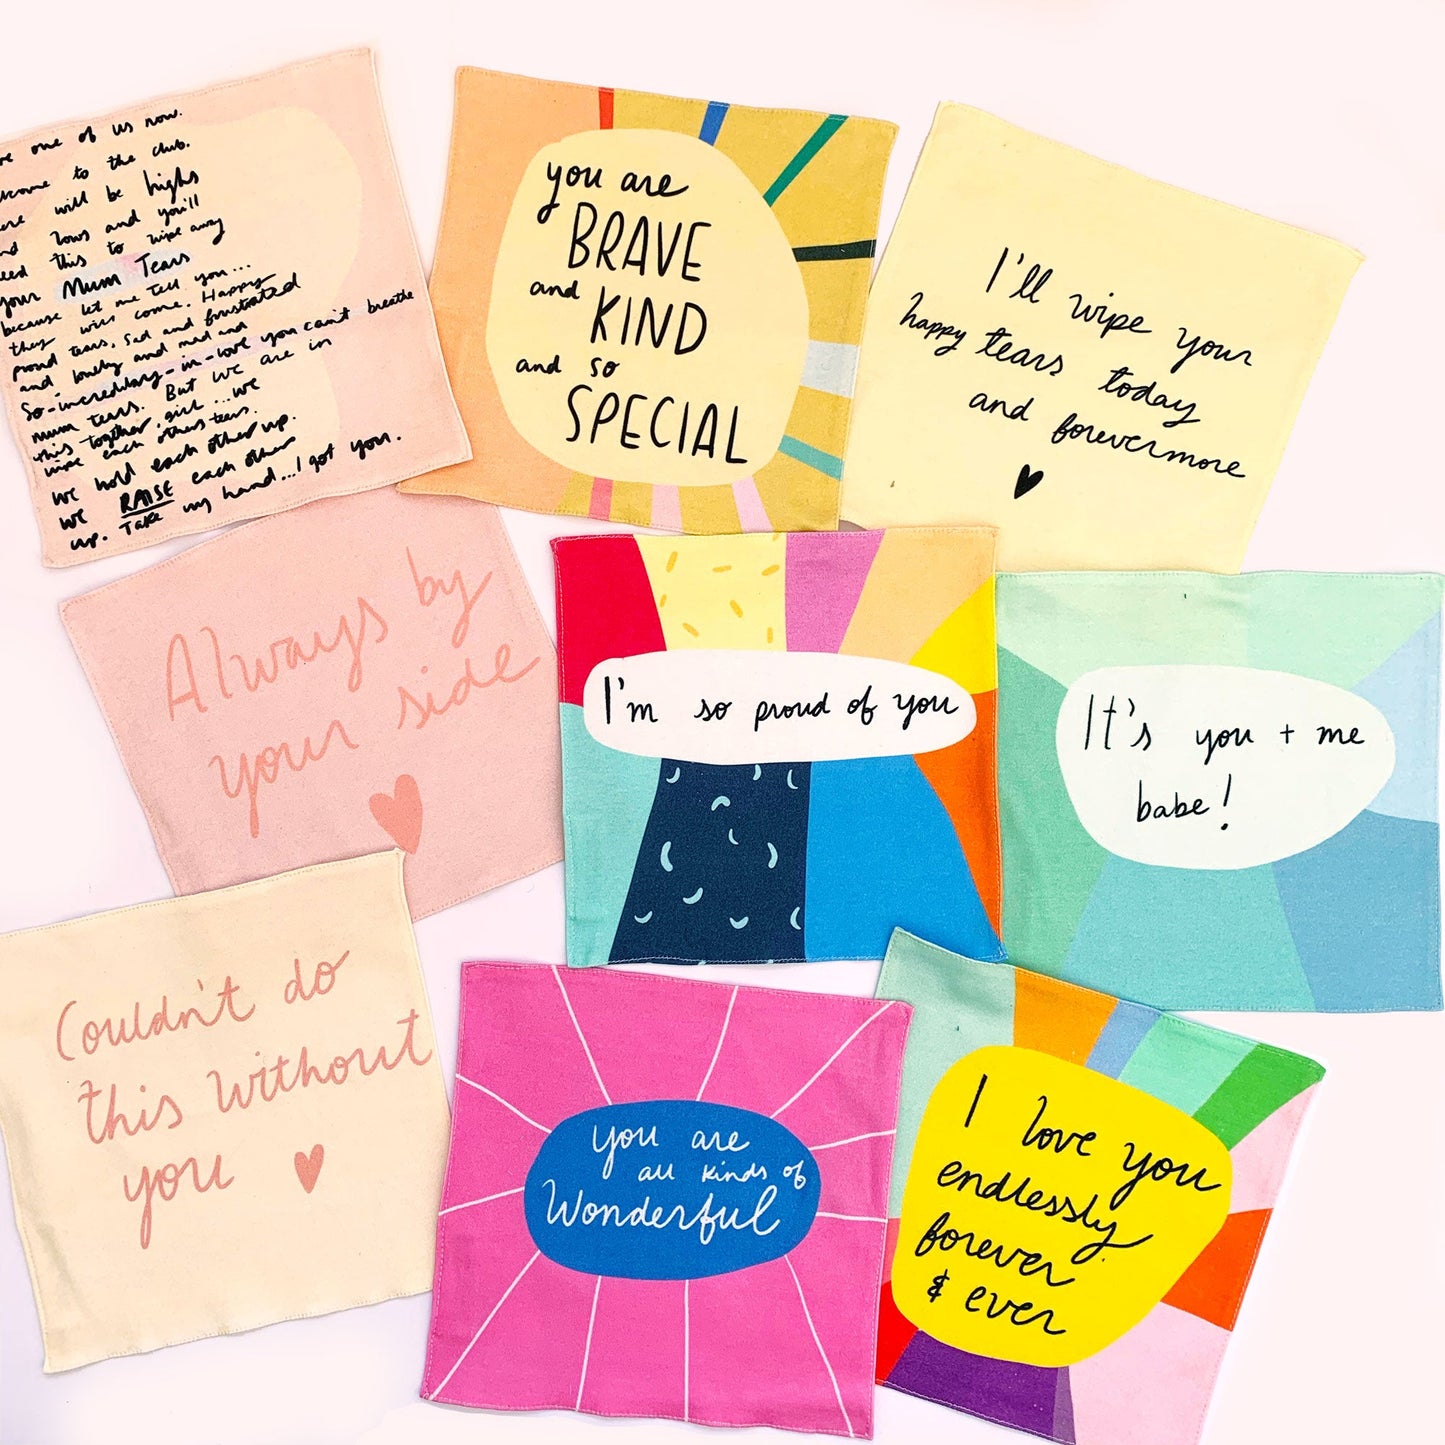 one of us now.
to the club.
will be highs
lows and you'll
this to wipe away
your Mum Tears
because let me tell you...
they will come. Happy
proud tears, sad and frustrated
and lonely and mad and
so-incredibly-in-love you can't breathe
mum tears. But we are in
this together, girl...we
wipe each others tears.
we hold each other up.
we RAISE each other
up. Take my hand...I got you.
you are
BRAVE
and KIND
and so
SPECIAL
I'll wipe your
happy tears today
and forevermore
Always by
your side
I'm so proud of you
It's you + me
babe!
Couldn't do
this without
you
you are
all kinds of
Wonderful
I love you
endlessly
forever
& ever